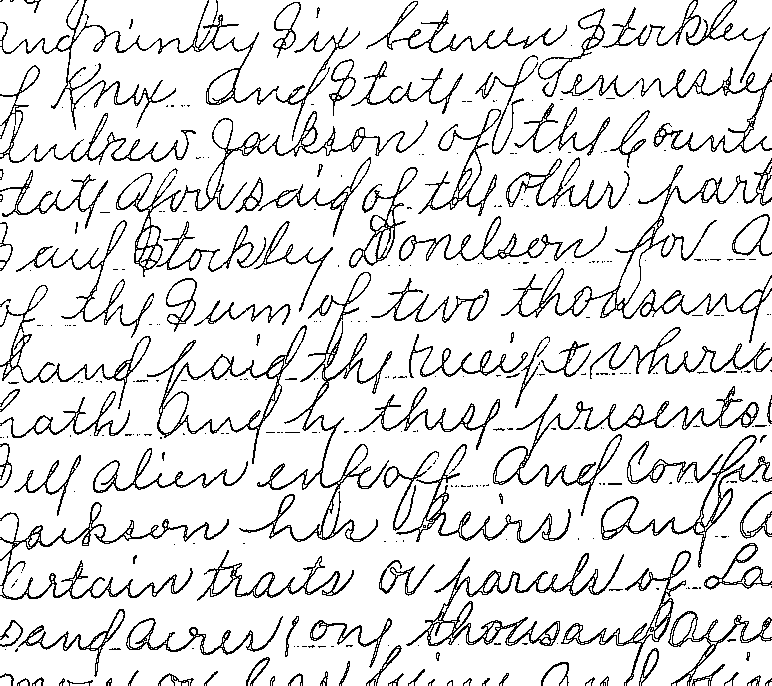 and ninty Six between Stockley
of Knox and State of Tennessee
Andrew Jackson of the Count
State aforesaid of the other part
Said Stockley Donelson for a
of the Sum of two thousand
hand paid the receipt where
hath and by these presents
Sell alien enfeoff and confir
Jackson his heirs and a
Certain tracts or parcels of La
sand acres, one thousand acre
more or less being and bein